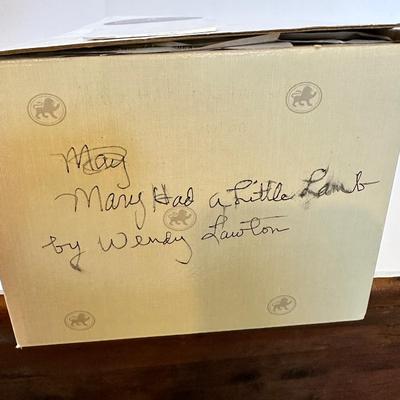 Mary Had a Little Lamb
by Wendy Lawton